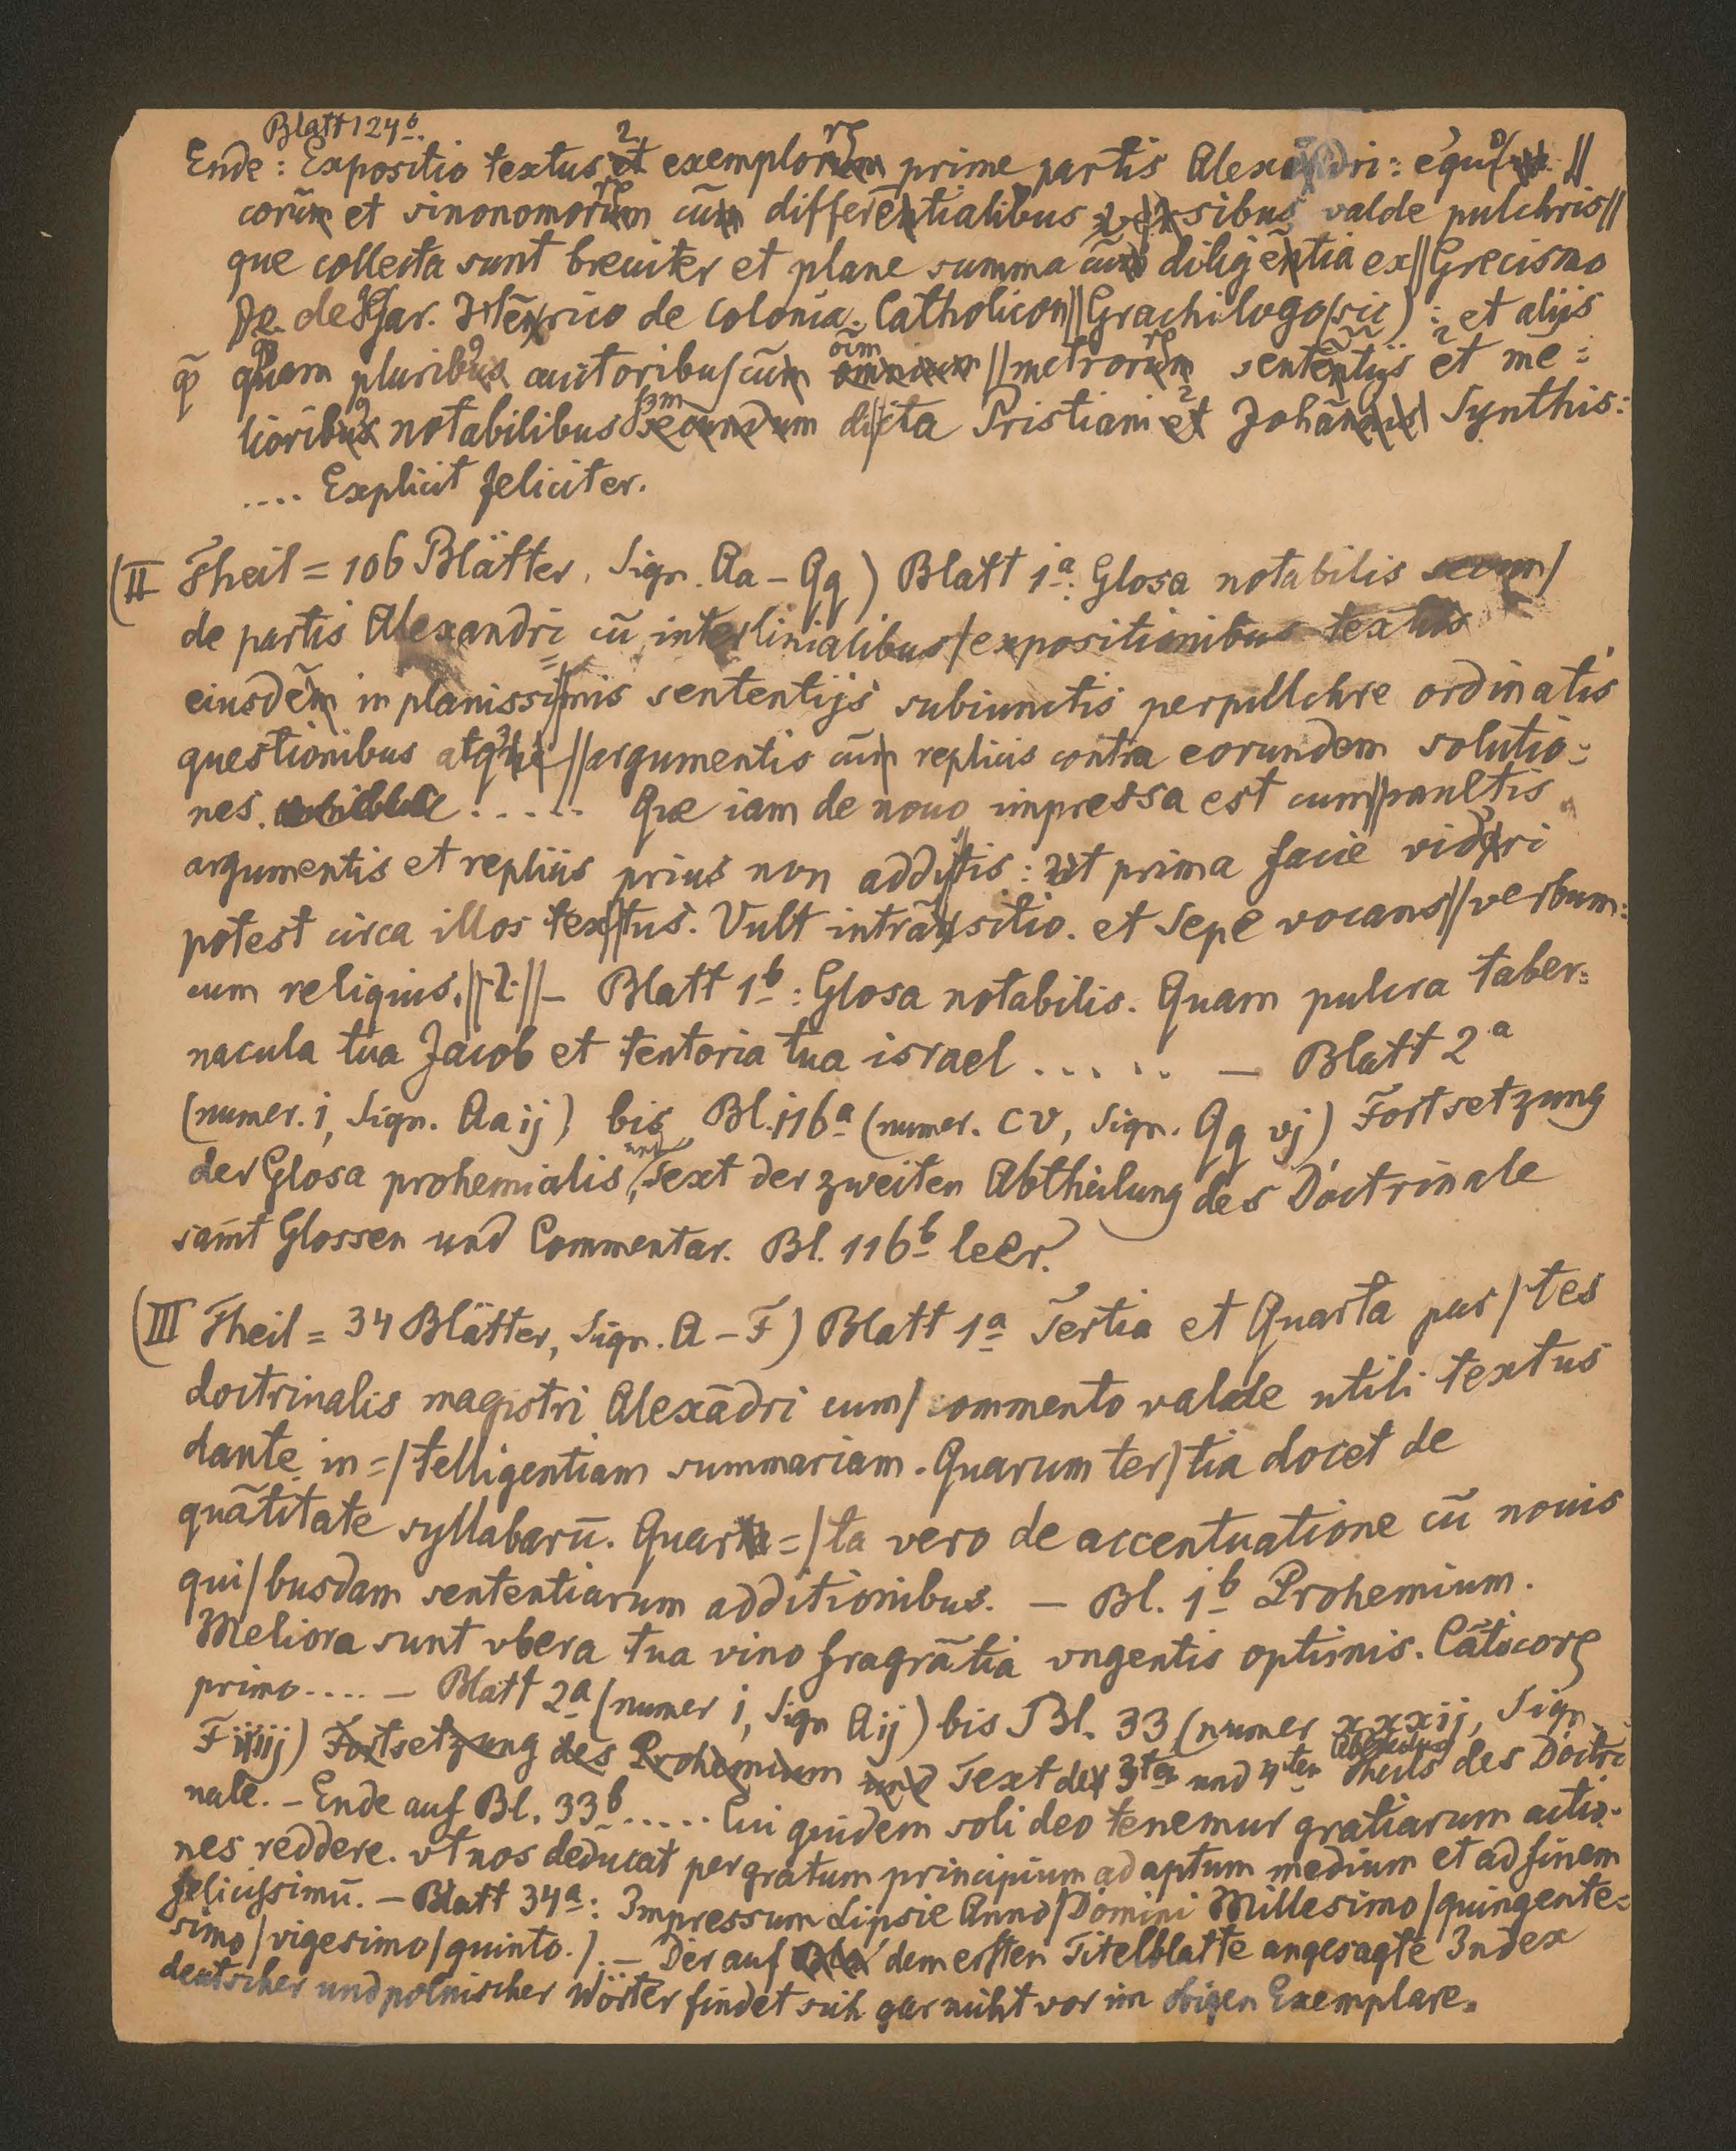 Blatt 124b.
Ende: Expositio textus et exemplorum prime partis Alexandri: equi //
corum et sinonomorum cum differentialibus versibus valde pulchris //
que collecta sunt breuiter et plane summa cum diligentia ex // Grecismo
Jo. de Gar. Henrico de Colonia. Catholicon // Grachilogo (sic) : et aliis
quam pluribus autoribus / cum omnium // metrorum sententijs et me =
lioribus notabilibus secundum dicta Pristiani et Johannis Synthis:
.... Explicit feliciter.
(II Theil = 106 Blätter, Sign. Aa – Qq) Blatt 1a: Glosa notabilis secun /
de partis Alexandri cū interlinialibus / expositionibus textus
eiusdēm in planissi // mis sententijs subiunctis perpulchre ordinatis
questionibus atque // argumentis cum replicis contra eorundem solutio =
nes. ..... Que iam de nouo impressa est cum // multis
argumentis et replicis prius non addi // tis: ut prima facie videri
potest circa illos tex // tus. Vult intrānsitio. et Sepe vocans // verbum:
cum reliquis. // 2 // – Blatt 1b: Glosa notabilis. Quam pulcra taber =
nacula tua Jacob et tentoria tua israel ..... – Blatt 2a
(numer. i, Sign. Aa ij) bis Bl. 116a (numer. CV, Sign. Qq vj) Fortsetzung
der Glosa prohemialis, und Text der zweiten Abtheilung des Doctrinale
sam̄t Glossen und Commentar. Bl. 116b leer.
(III Theil = 34 Blätter, Sign. A – F) Blatt 1a Tertia et Quarta par / tes
doctrinalis magistri Alexādri cum / commento valde utili textus
dante in = / telligentiam summariam. Quarum ter / tia docet de
quātitate syllabarū. Quar = / ta vero de accentuatione cū nouis
qui / busdam sententiarum additionibus. – Bl. 1b Prohemium.
Meliora sunt vbera tua vino fragrātia vngentis optimis. Cāticorꝝ
primo .... – Blatt 2a (numer i, Sign Aij) bis Bl. 33 (numer xxxij, Sign
F iiiij) Fortsetzung des Prohemium und Text des 3ten und 4ten Theils des Doctri
nale. – Ende auf Bl. 33b ..... Cui quidem soli deo tenemur gratiarum actio =
nes reddere. vt nos deducat per gratum principium ad aptum medium et ad finem
felicissimū. – Blatt 34a: Impressum Lipsie Anno / Domini Millesimo / quingente =
simo / vigesimo / quinto. /. – Der auf dem ersten Titelblatte angesagte Index
deutscher und polnischer Wörter findet sich gar nicht vor im obigen Exemplare.